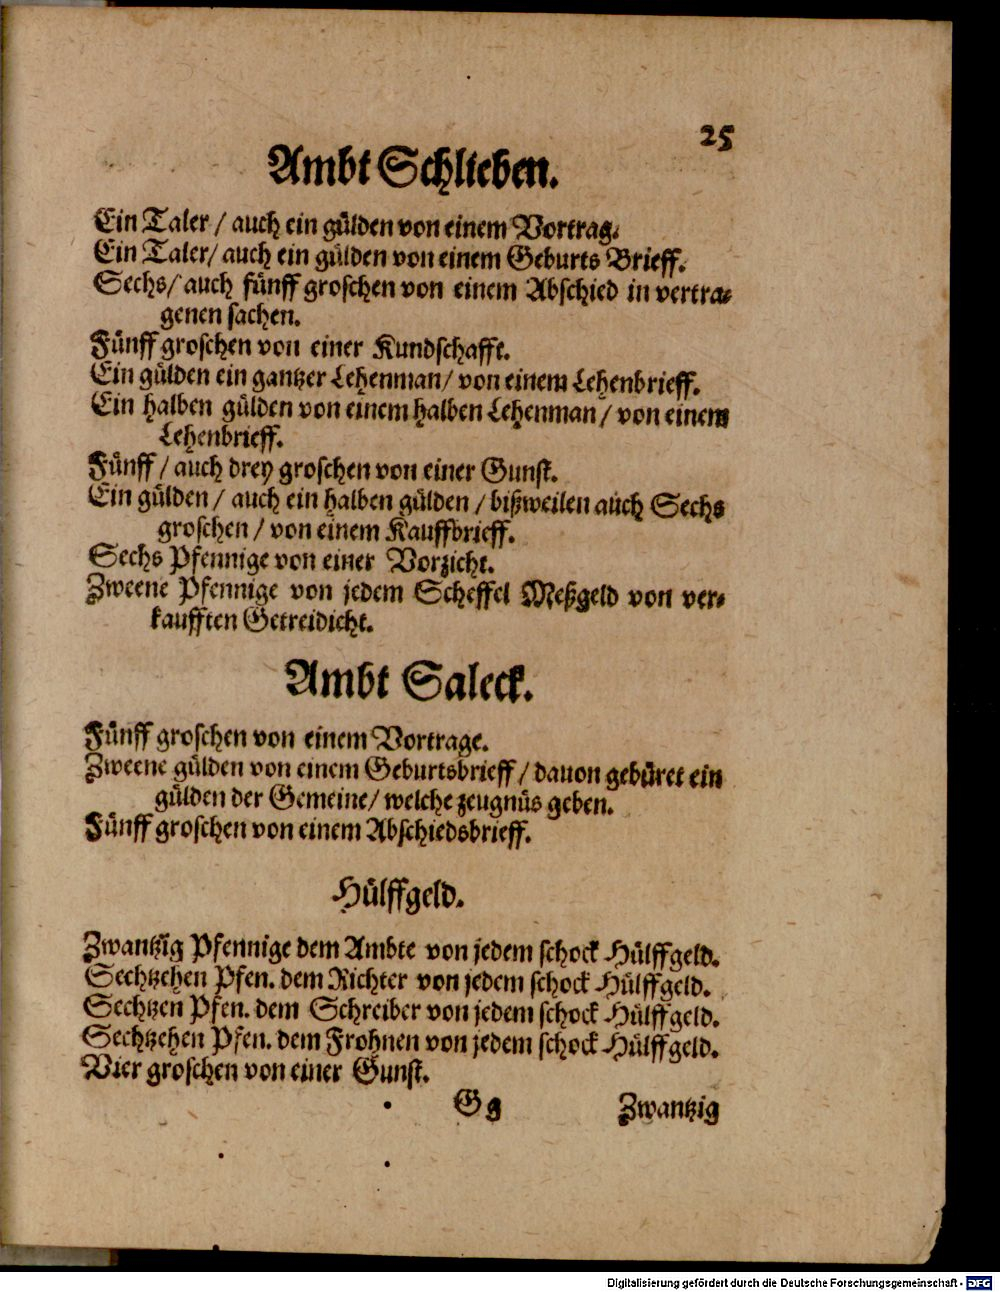 25
Ambt Schlieben.
Ein Taler / auch ein gülden von einem Vortrag.
Ein Taler/ auch ein gülden von einem Geburts Brieff.
Sechs/ auch fünff groschen von einem Abschied in vertra-
genen sachen.
Fünff groschen von einer Kundschafft.
Ein gülden ein gantzer Lehenman/ von einem Lehenbrieff.
Ein halben gülden von einem halben Lehenman / von einem
Lehenbrieff.
Fünff / auch drey groschen von einer Gunst.
Ein gülden / auch ein halben gülden / bißweilen auch Sechs
groschen / von einem Kauffbrieff.
Sechs Pfennige von einer Vorzicht.
Zweene Pfennige von jedem Scheffel Meßgeld von ver-
kaufften Getreidicht.
Ambt Saleck.
Fünff groschen von einem Vortrage.
Zweene gülden von einem Geburtsbrieff / dauon gebüret ein
gülden der Gemeine/ welche zeugnüs geben.
Fünff groschen von einem Abschiedsbrieff.
Hülffgeld.
Zwantzig Pfennige dem Ambte von jedem schock Hülffgeld.
Sechtzehen Pfen. dem Richter von jedem schock Hülffgeld.
Sechtzen Pfen. dem Schreiber von jedem schock Hülffgeld.
Sechtzehen Pfen. dem Frohnen von jedem schock Hülffgeld.
Vier groschen von einer Gunst.
Gg Zwantzig
Digitalisierung gefördert durch die Deutsche Forschungsgemeinschaft - DFG